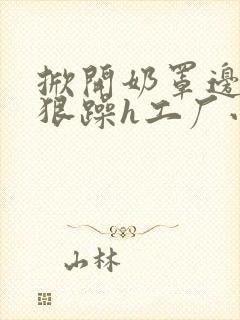 掀開奶罩邊
狠躁h工厂
山林